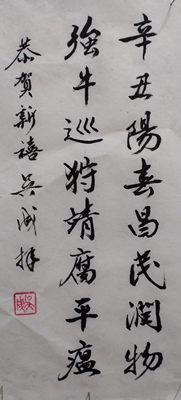 辛丑陽春昌民潤物
強牛巡狩靖腐平瘟
恭賀新禧吳斌拜